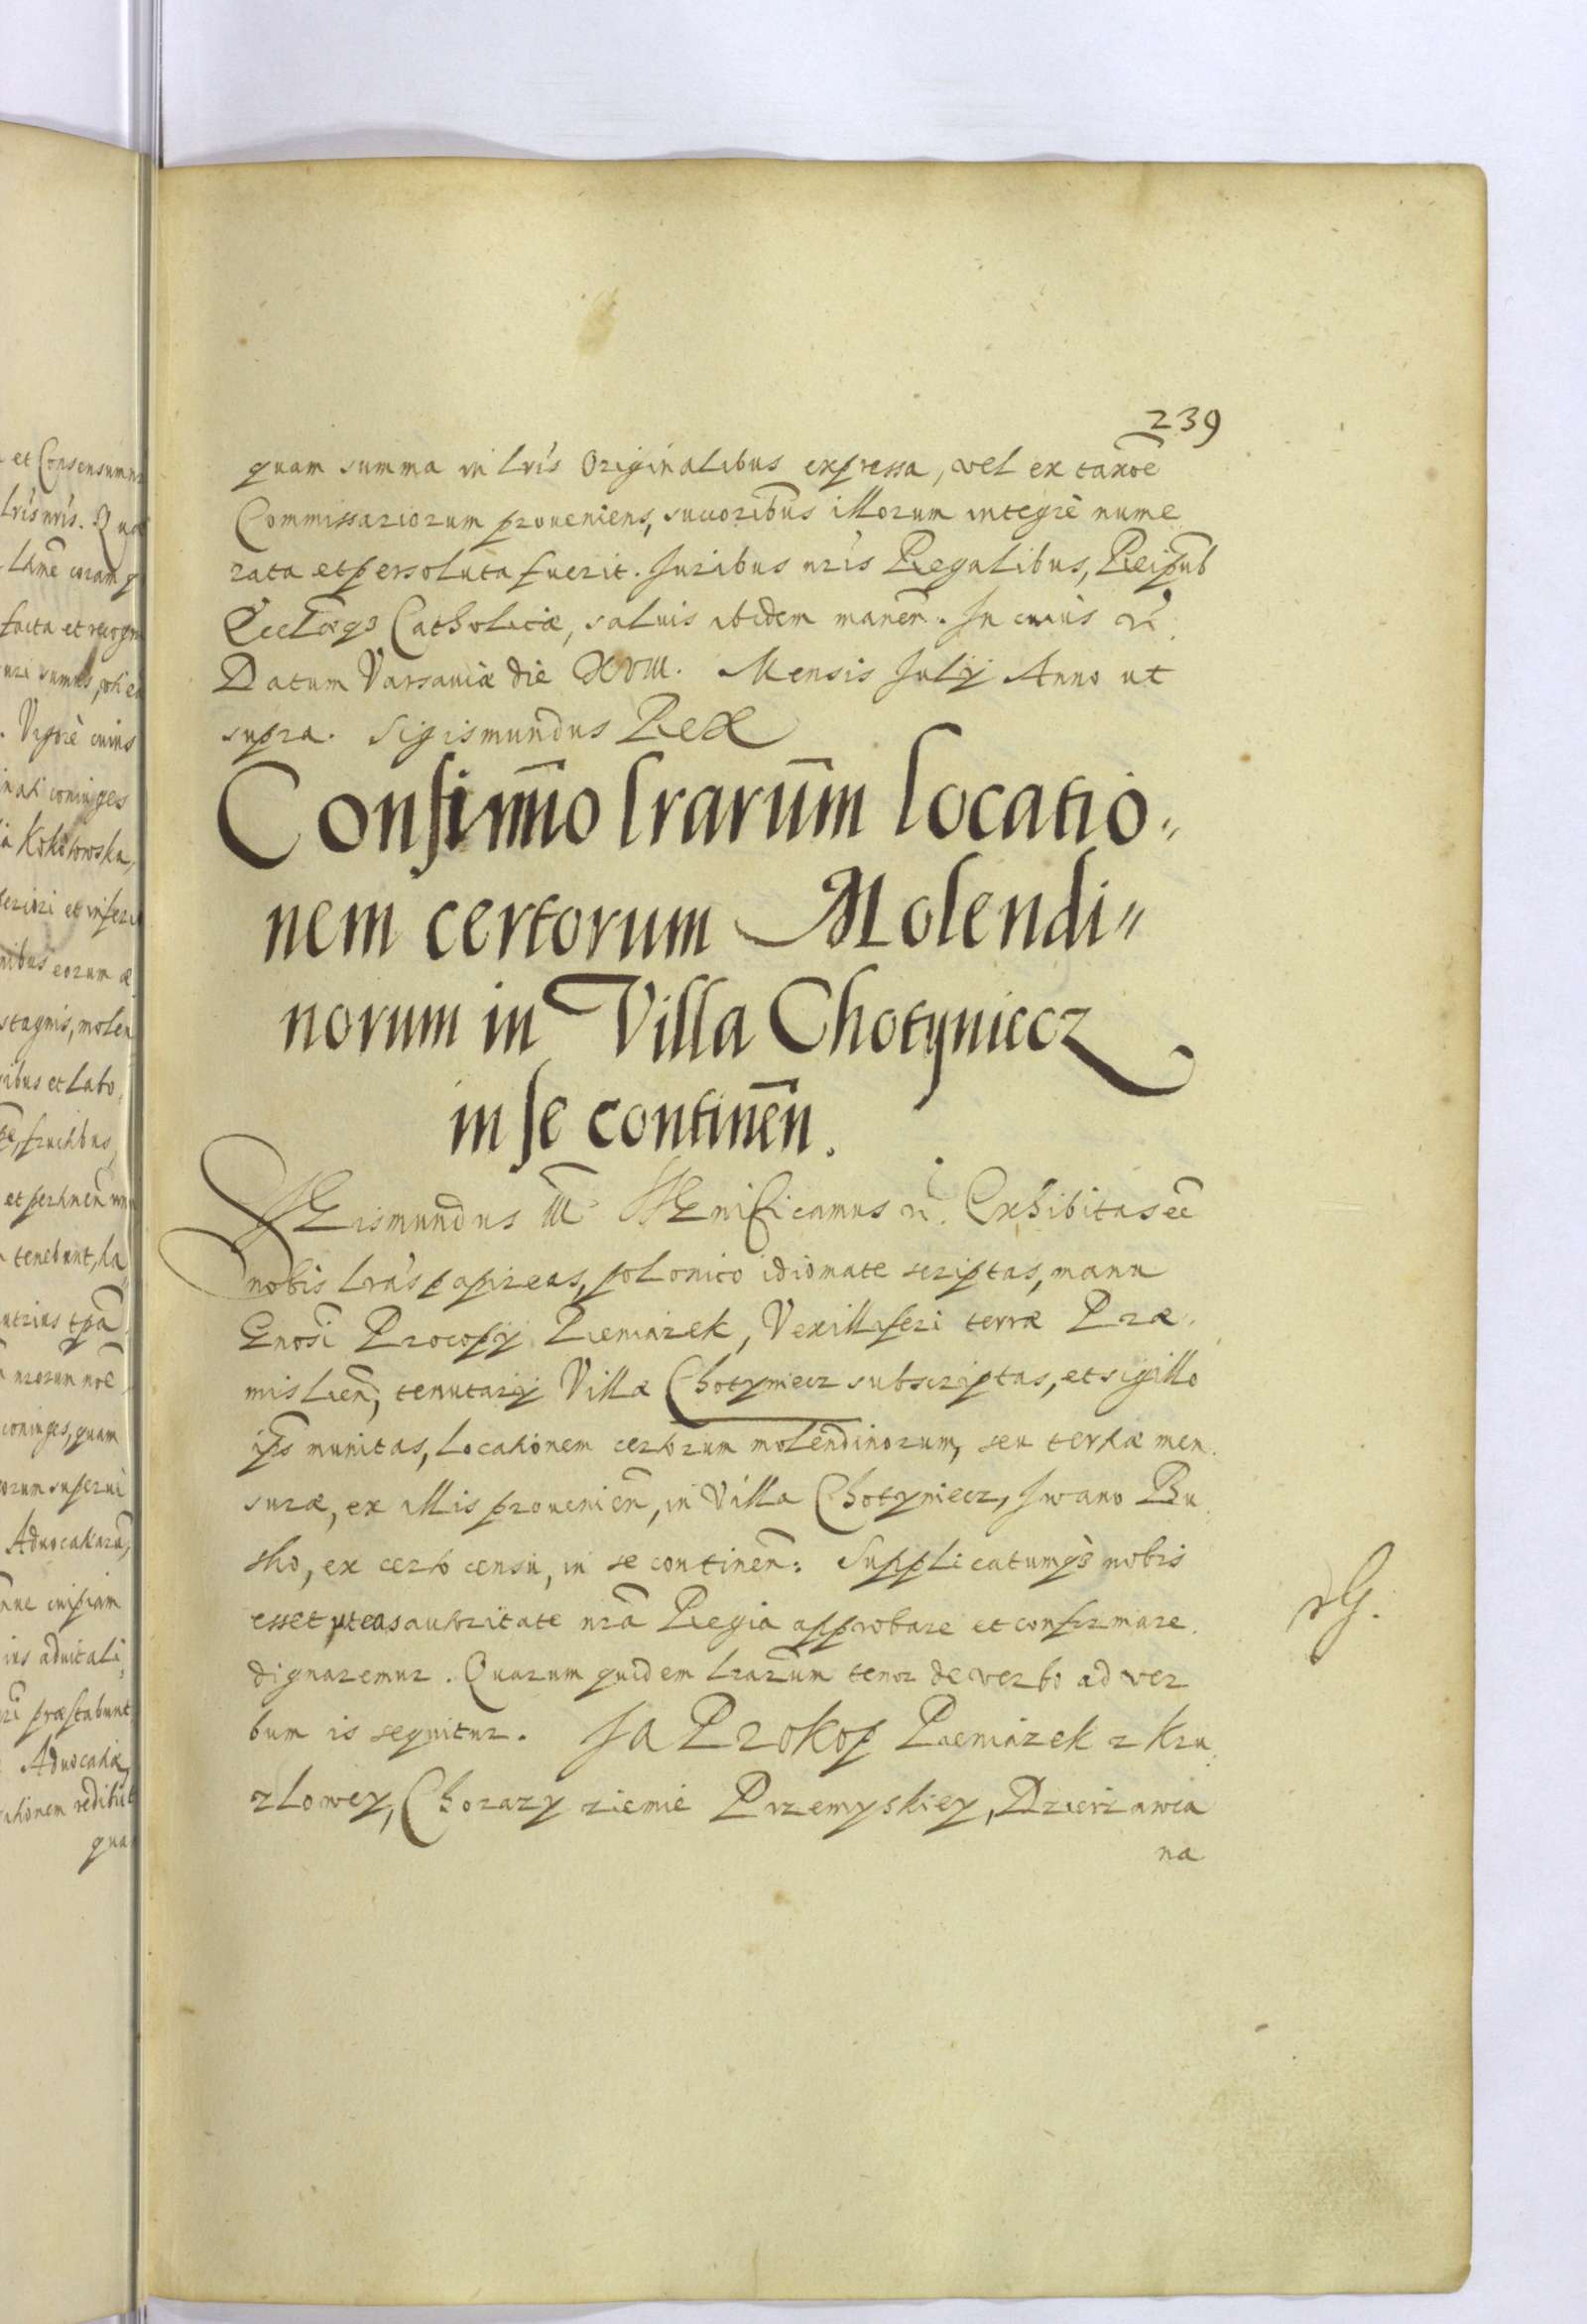 239
quam summa in lrīs Originalibus expressa, vel ex taxoē
Commissariorum proueniens, succoribus illorum integrè nume
rata et persoluta fuerit. Juribus nrīs Regalibus, Reipub
Ecclæqз Catholicæ, saluis ibidem manen̄. In cuius rċ.
Datum Varsauiæ die XVIII. Mensis July Anno ut
supra. Sigismundus Rex
Confirm̄o lrarūm locatio„
nem certorum Molendi„
norum in Villa Chotyniecz
in se continēn.
SGismundus III SGnificamus rċ. Exhibitas eē
nobis lrās papireas, polonico idiomate scriptas, manu
Gnosi Procopy Pieniazek, Vexilliferi terræ Præ„
mislien̄, tenutary Villæ Chotyniecz subscriptas, et sigillo
ip̄s munitas, locationem certorum molendinorum, seu tertiæ men
suræ, ex illis prouenien̄, in Villa Chotyniecz, Iwano Bu
sko, ex certo censu, in se continen̄: Supplicatumqз nobis
esset ut eas autoritate nrā Regia approbare et confirmare
dignaremur. Quarum quidem lrarum tenor de verbo ad ver
bum is sequitur. Ja Prokop Pieniazek z Kru
zlowey, Chorazy ziemie Przemyskiey, Dzierzawca
na
et Consensum nr
lrīs nrīs. Qua
coram
facta et recogn
Vigore cuius
coniuges
Kokotowska,
eriori et inferi
nibus eorum
stagnis, molen
ibus et labo
fructibus
tenebunt, ha
nrorum noē
coniuges, quam
Aduocatiæ
præstabunt
Aduocatiæ
tionem reditus
qua